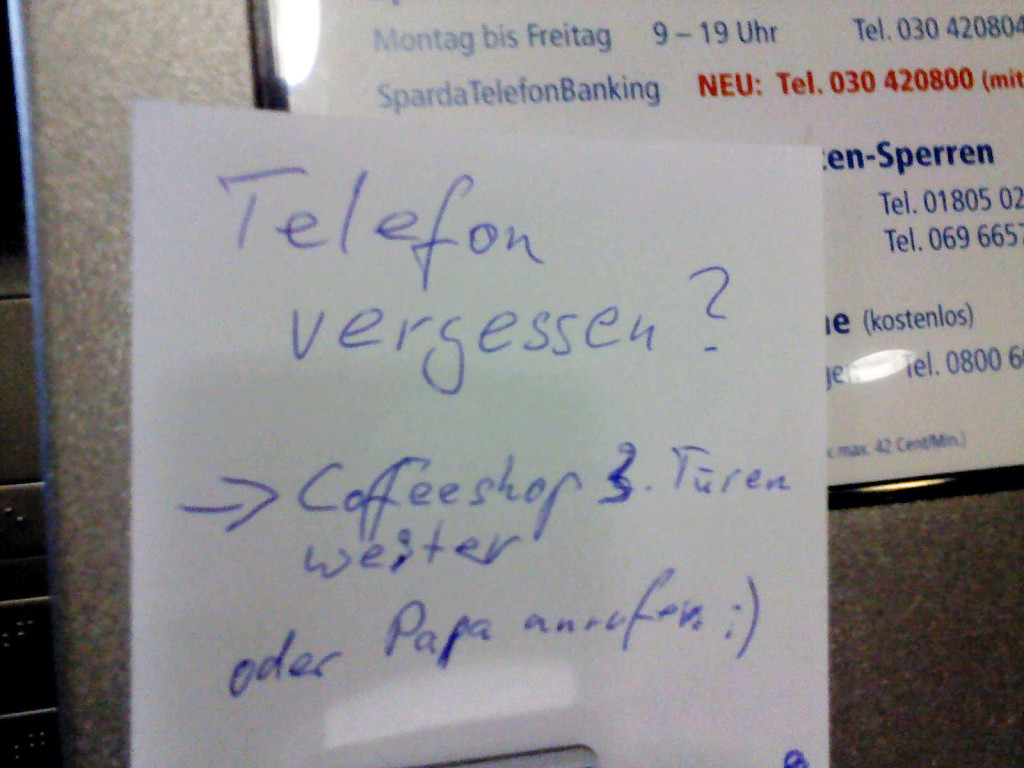 Montag bis Freitag 9 – 19 Uhr Tel. 030 420804
SpardaTelefonBanking NEU: Tel. 030 420800 (mit
en-Sperren
Tel. 01805 02
Tel. 069 6657
e (kostenlos)
Tel. 0800 6
max. 42 Cent/Min.)
Telefon
vergessen?
→ Coffeeshop 3. Türen
weiter
oder Papa anrufen ;)